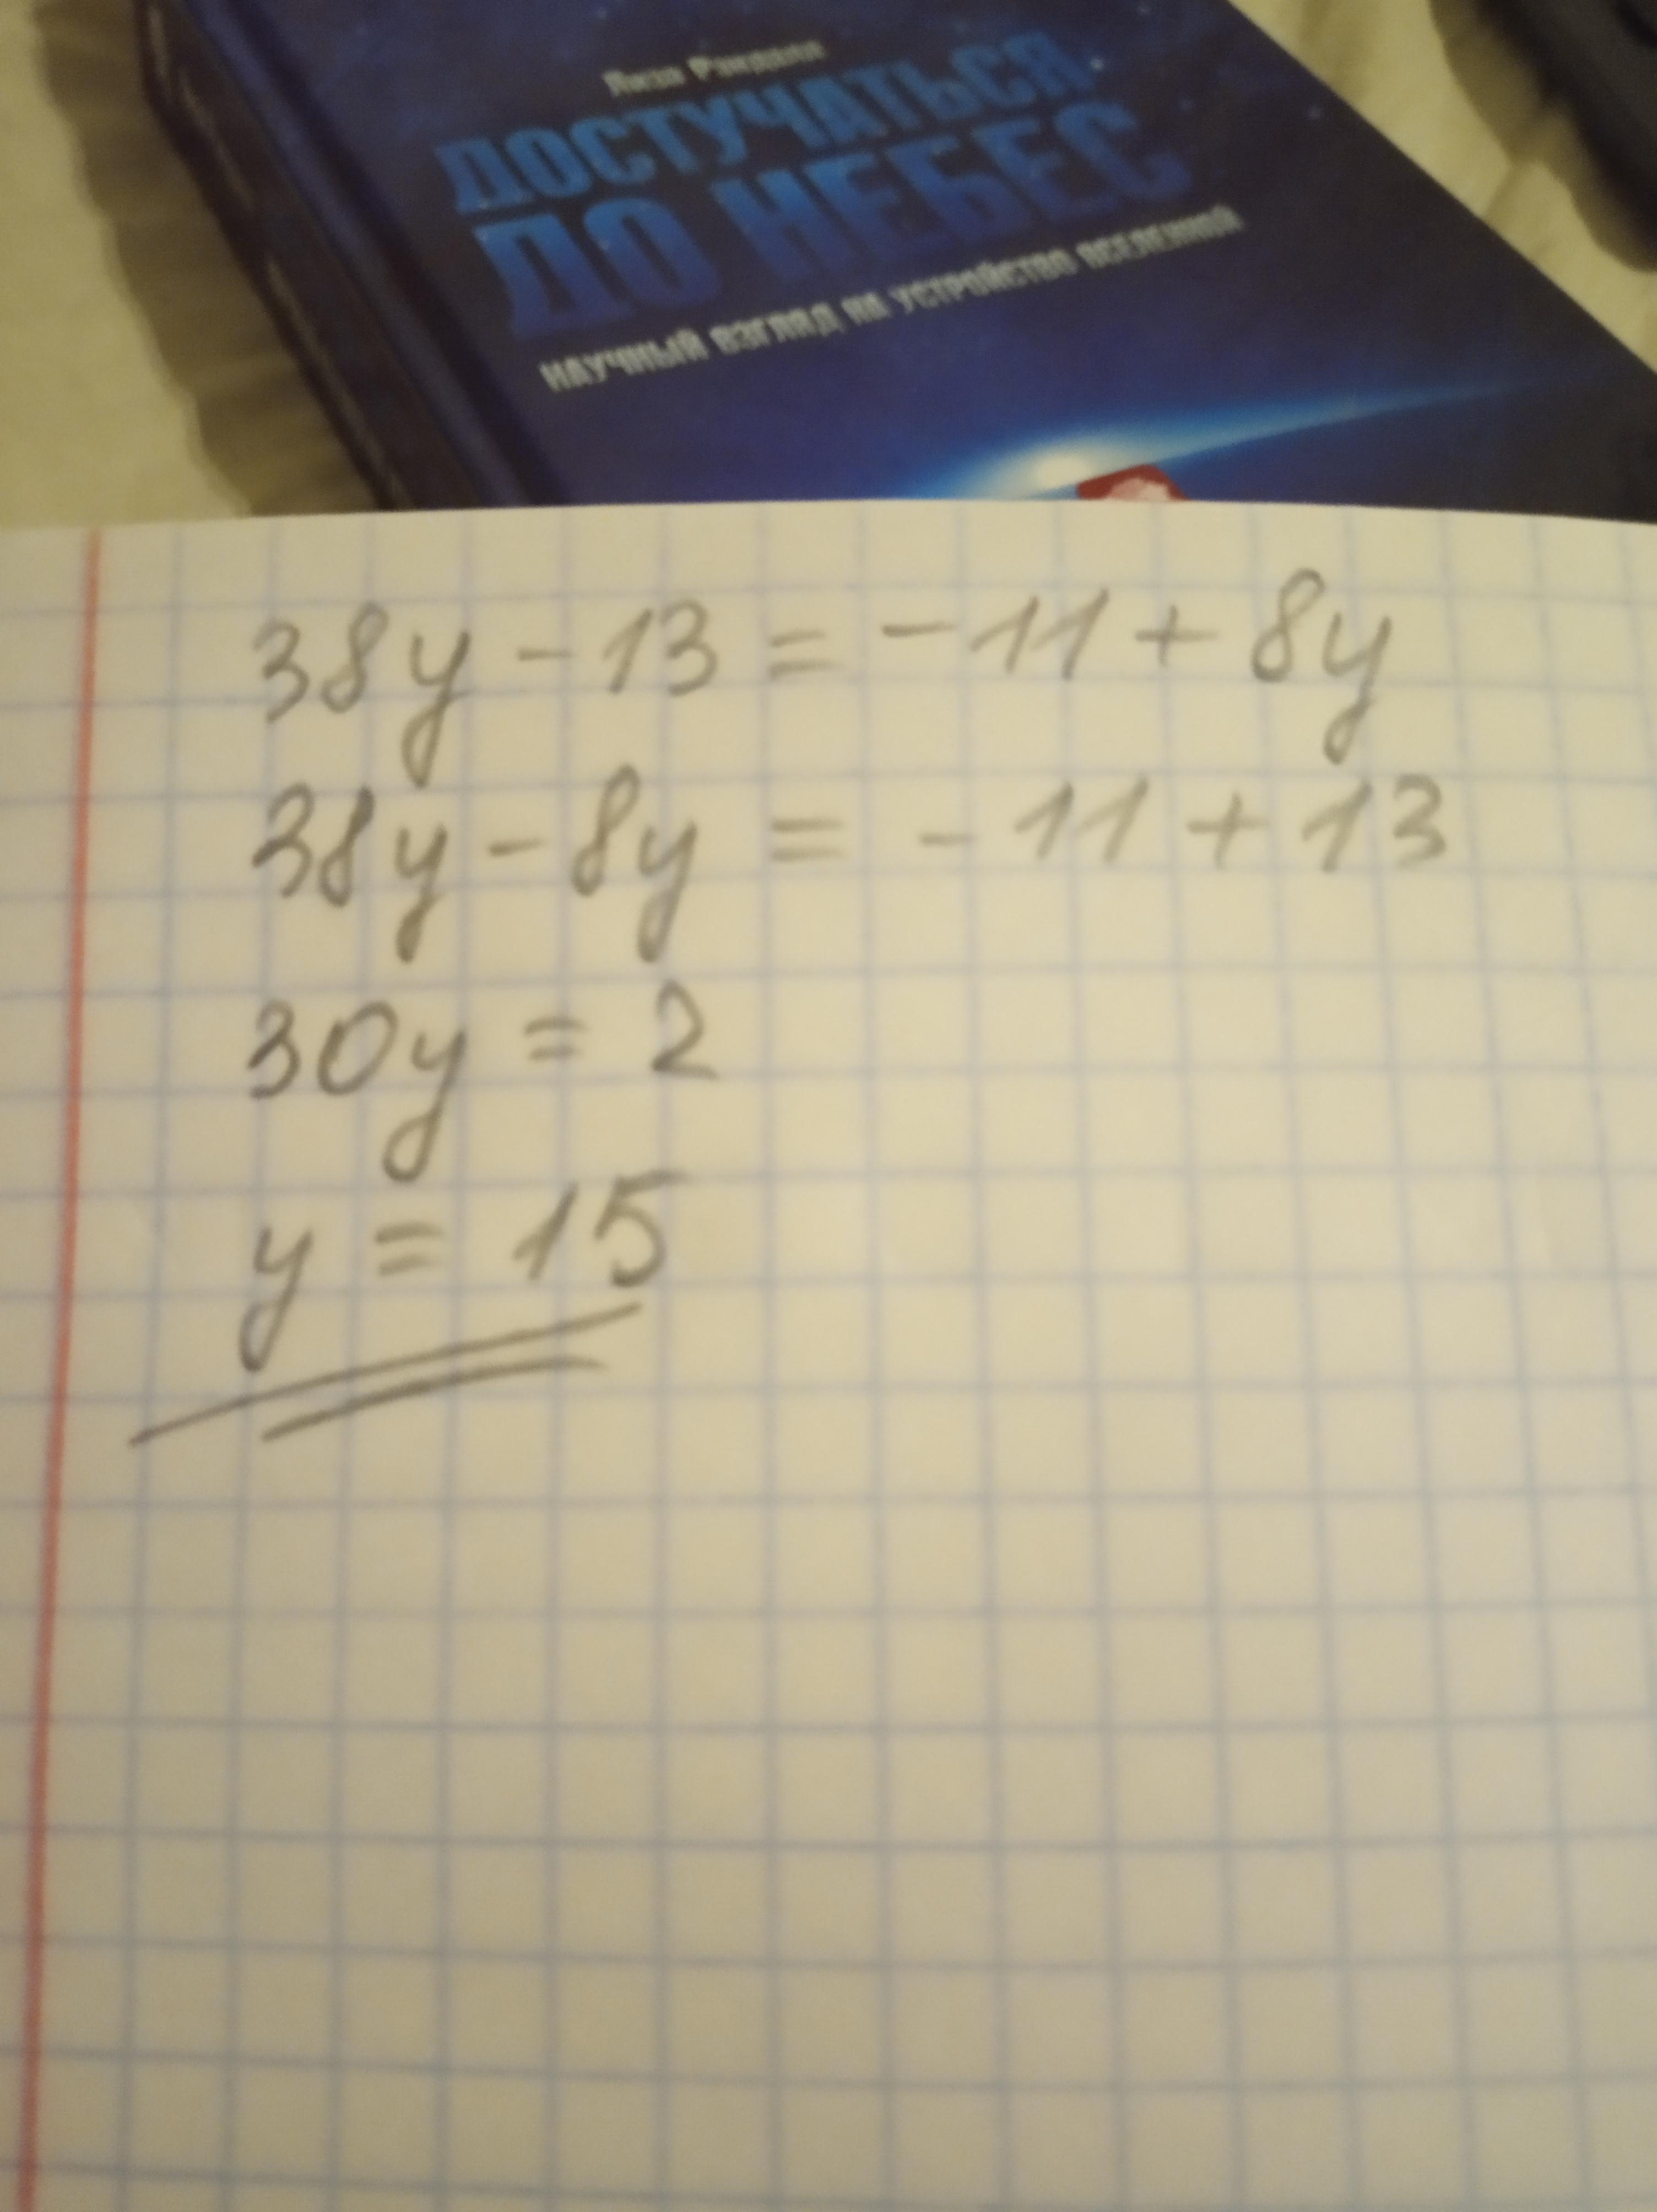 Лиза Рэндалл
ДОСТУЧАТЬСЯ
ДО НЕБЕС
НАУЧНЫЙ ВЗГЛЯД НА УСТРОЙСТВО ВСЕЛЕННОЙ
38y - 13 = - 11 + 8y
38y - 8y = - 11 + 13
30y = 2
y = 15